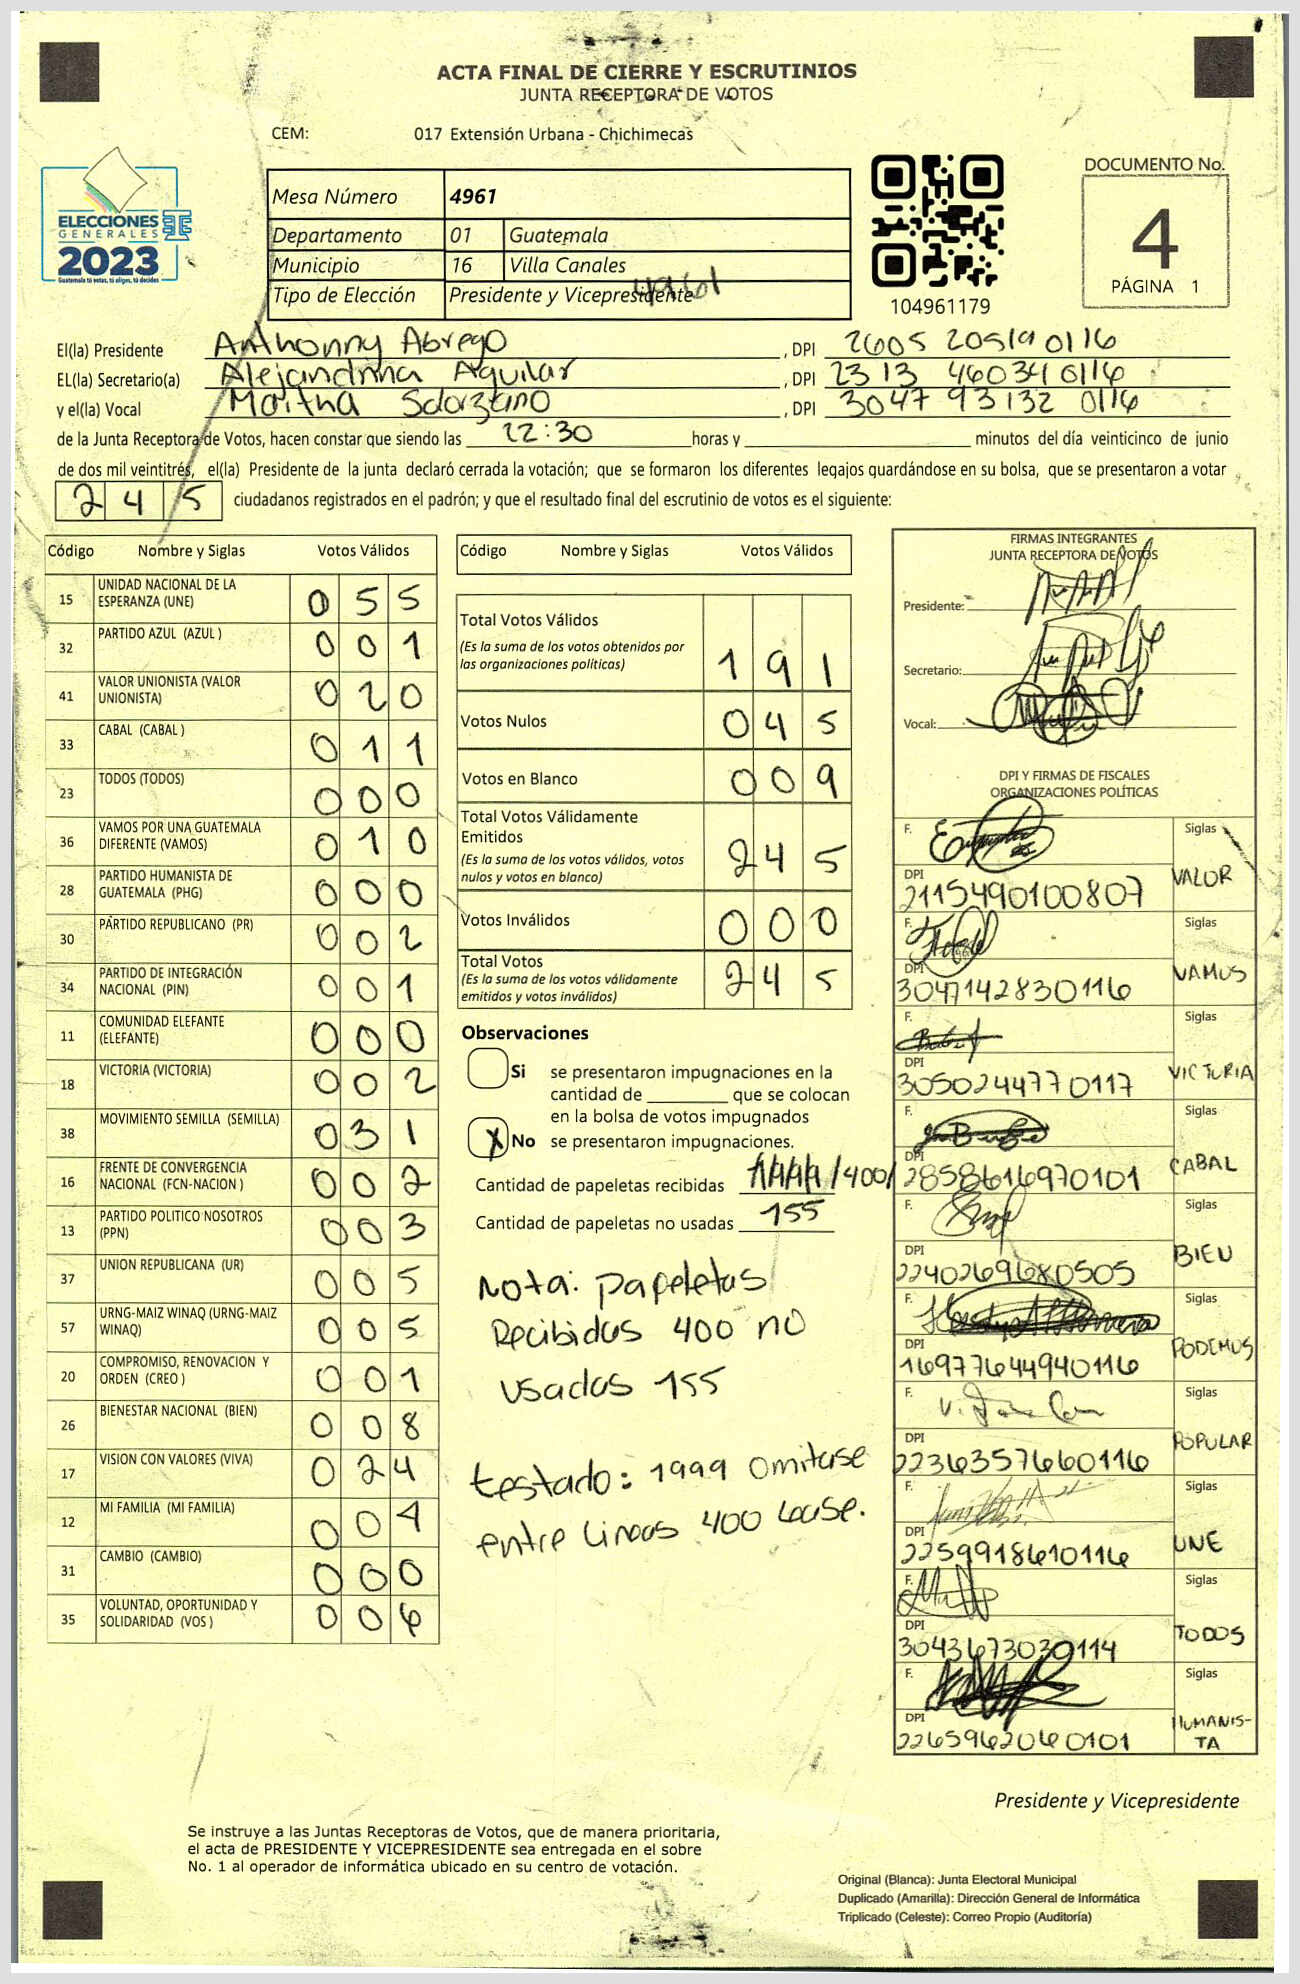 ACTA FINAL DE CIERRE Y ESCRUTINIOS
JUNTA RECEPTORA DE VOTOS
CEM: 017 Extensión Urbana - Chichimecas
ELECCIONES
GENERALES
2023
Guatemala tú votas, tú eliges, tú decides
Mesa Número 4961
Departamento 01 Guatemala
Municipio 16 Villa Canales
Tipo de Elección Presidente y Vicepresidente
4961
104961179
DOCUMENTO No.
4
PÁGINA 1
El(la) Presidente Anthonny Abrego , DPI 2605 20519 0116
EL(la) Secretario(a) Alejandrina Aguilar , DPI 2313 46034 0116
y el(la) Vocal Maitha Solorzano , DPI 3047 93132 0116
de la Junta Receptora de Votos, hacen constar que siendo las 22:30 horas y minutos del día veinticinco de junio
de dos mil veintitrés, el(la) Presidente de la junta declaró cerrada la votación; que se formaron los diferentes legajos guardándose en su bolsa, que se presentaron a votar
245 ciudadanos registrados en el padrón; y que el resultado final del escrutinio de votos es el siguiente:
Código Nombre y Siglas Votos Válidos
15 UNIDAD NACIONAL DE LA ESPERANZA (UNE) 055
32 PARTIDO AZUL (AZUL ) 001
41 VALOR UNIONISTA (VALOR UNIONISTA) 020
33 CABAL (CABAL ) 011
23 TODOS (TODOS) 000
36 VAMOS POR UNA GUATEMALA DIFERENTE (VAMOS) 010
28 PARTIDO HUMANISTA DE GUATEMALA (PHG) 000
30 PARTIDO REPUBLICANO (PR) 002
34 PARTIDO DE INTEGRACIÓN NACIONAL (PIN) 001
11 COMUNIDAD ELEFANTE (ELEFANTE) 000
18 VICTORIA (VICTORIA) 002
38 MOVIMIENTO SEMILLA (SEMILLA) 031
16 FRENTE DE CONVERGENCIA NACIONAL (FCN-NACION ) 002
13 PARTIDO POLITICO NOSOTROS (PPN) 003
37 UNION REPUBLICANA (UR) 005
57 URNG-MAIZ WINAQ (URNG-MAIZ WINAQ) 005
20 COMPROMISO, RENOVACION Y ORDEN (CREO ) 001
26 BIENESTAR NACIONAL (BIEN) 008
17 VISION CON VALORES (VIVA) 024
12 MI FAMILIA (MI FAMILIA) 004
31 CAMBIO (CAMBIO) 000
35 VOLUNTAD, OPORTUNIDAD Y SOLIDARIDAD (VOS ) 006
Código Nombre y Siglas Votos Válidos
Total Votos Válidos
(Es la suma de los votos obtenidos por
las organizaciones políticas) 191
Votos Nulos 045
Votos en Blanco 009
Total Votos Válidamente
Emitidos
(Es la suma de los votos válidos, votos
nulos y votos en blanco) 245
Votos Inválidos 000
Total Votos
(Es la suma de los votos válidamente
emitidos y votos inválidos) 245
Observaciones
Si se presentaron impugnaciones en la
cantidad de que se colocan
en la bolsa de votos impugnados
X No se presentaron impugnaciones.
Cantidad de papeletas recibidas /400/
Cantidad de papeletas no usadas 155
Nota: papeletas
Recibidas 400 no
usadas 155
testado: 1999 omitase
entre lineas 400 lease.
FIRMAS INTEGRANTES
JUNTA RECEPTORA DE VOTOS
Presidente:
Secretario:
Vocal:
DPI Y FIRMAS DE FISCALES
ORGANIZACIONES POLÍTICAS
F. Siglas
DPI 2115490100807 VALOR
F. Siglas
DPI 3047142830116 VAMOS
F. Siglas
DPI 3050244770117 VICTURIA
F. Siglas
DPI 2858616970101 CABAL
F. Siglas
DPI 2240269680505 BIEN
F. Siglas
DPI 16977644940116 PODEMOS
F. Siglas
DPI 2236357660116 POPULAR
F. Siglas
DPI 2259918610116 UNE
F. Siglas
DPI 3043673030114 TODOS
F. Siglas
DPI 2265962060101 HUMANIS-
TA
Presidente y Vicepresidente
Se instruye a las Juntas Receptoras de Votos, que de manera prioritaria,
el acta de PRESIDENTE Y VICEPRESIDENTE sea entregada en el sobre
No. 1 al operador de informática ubicado en su centro de votación.
Original (Blanca): Junta Electoral Municipal
Duplicado (Amarilla): Dirección General de Informática
Triplicado (Celeste): Correo Propio (Auditoría)